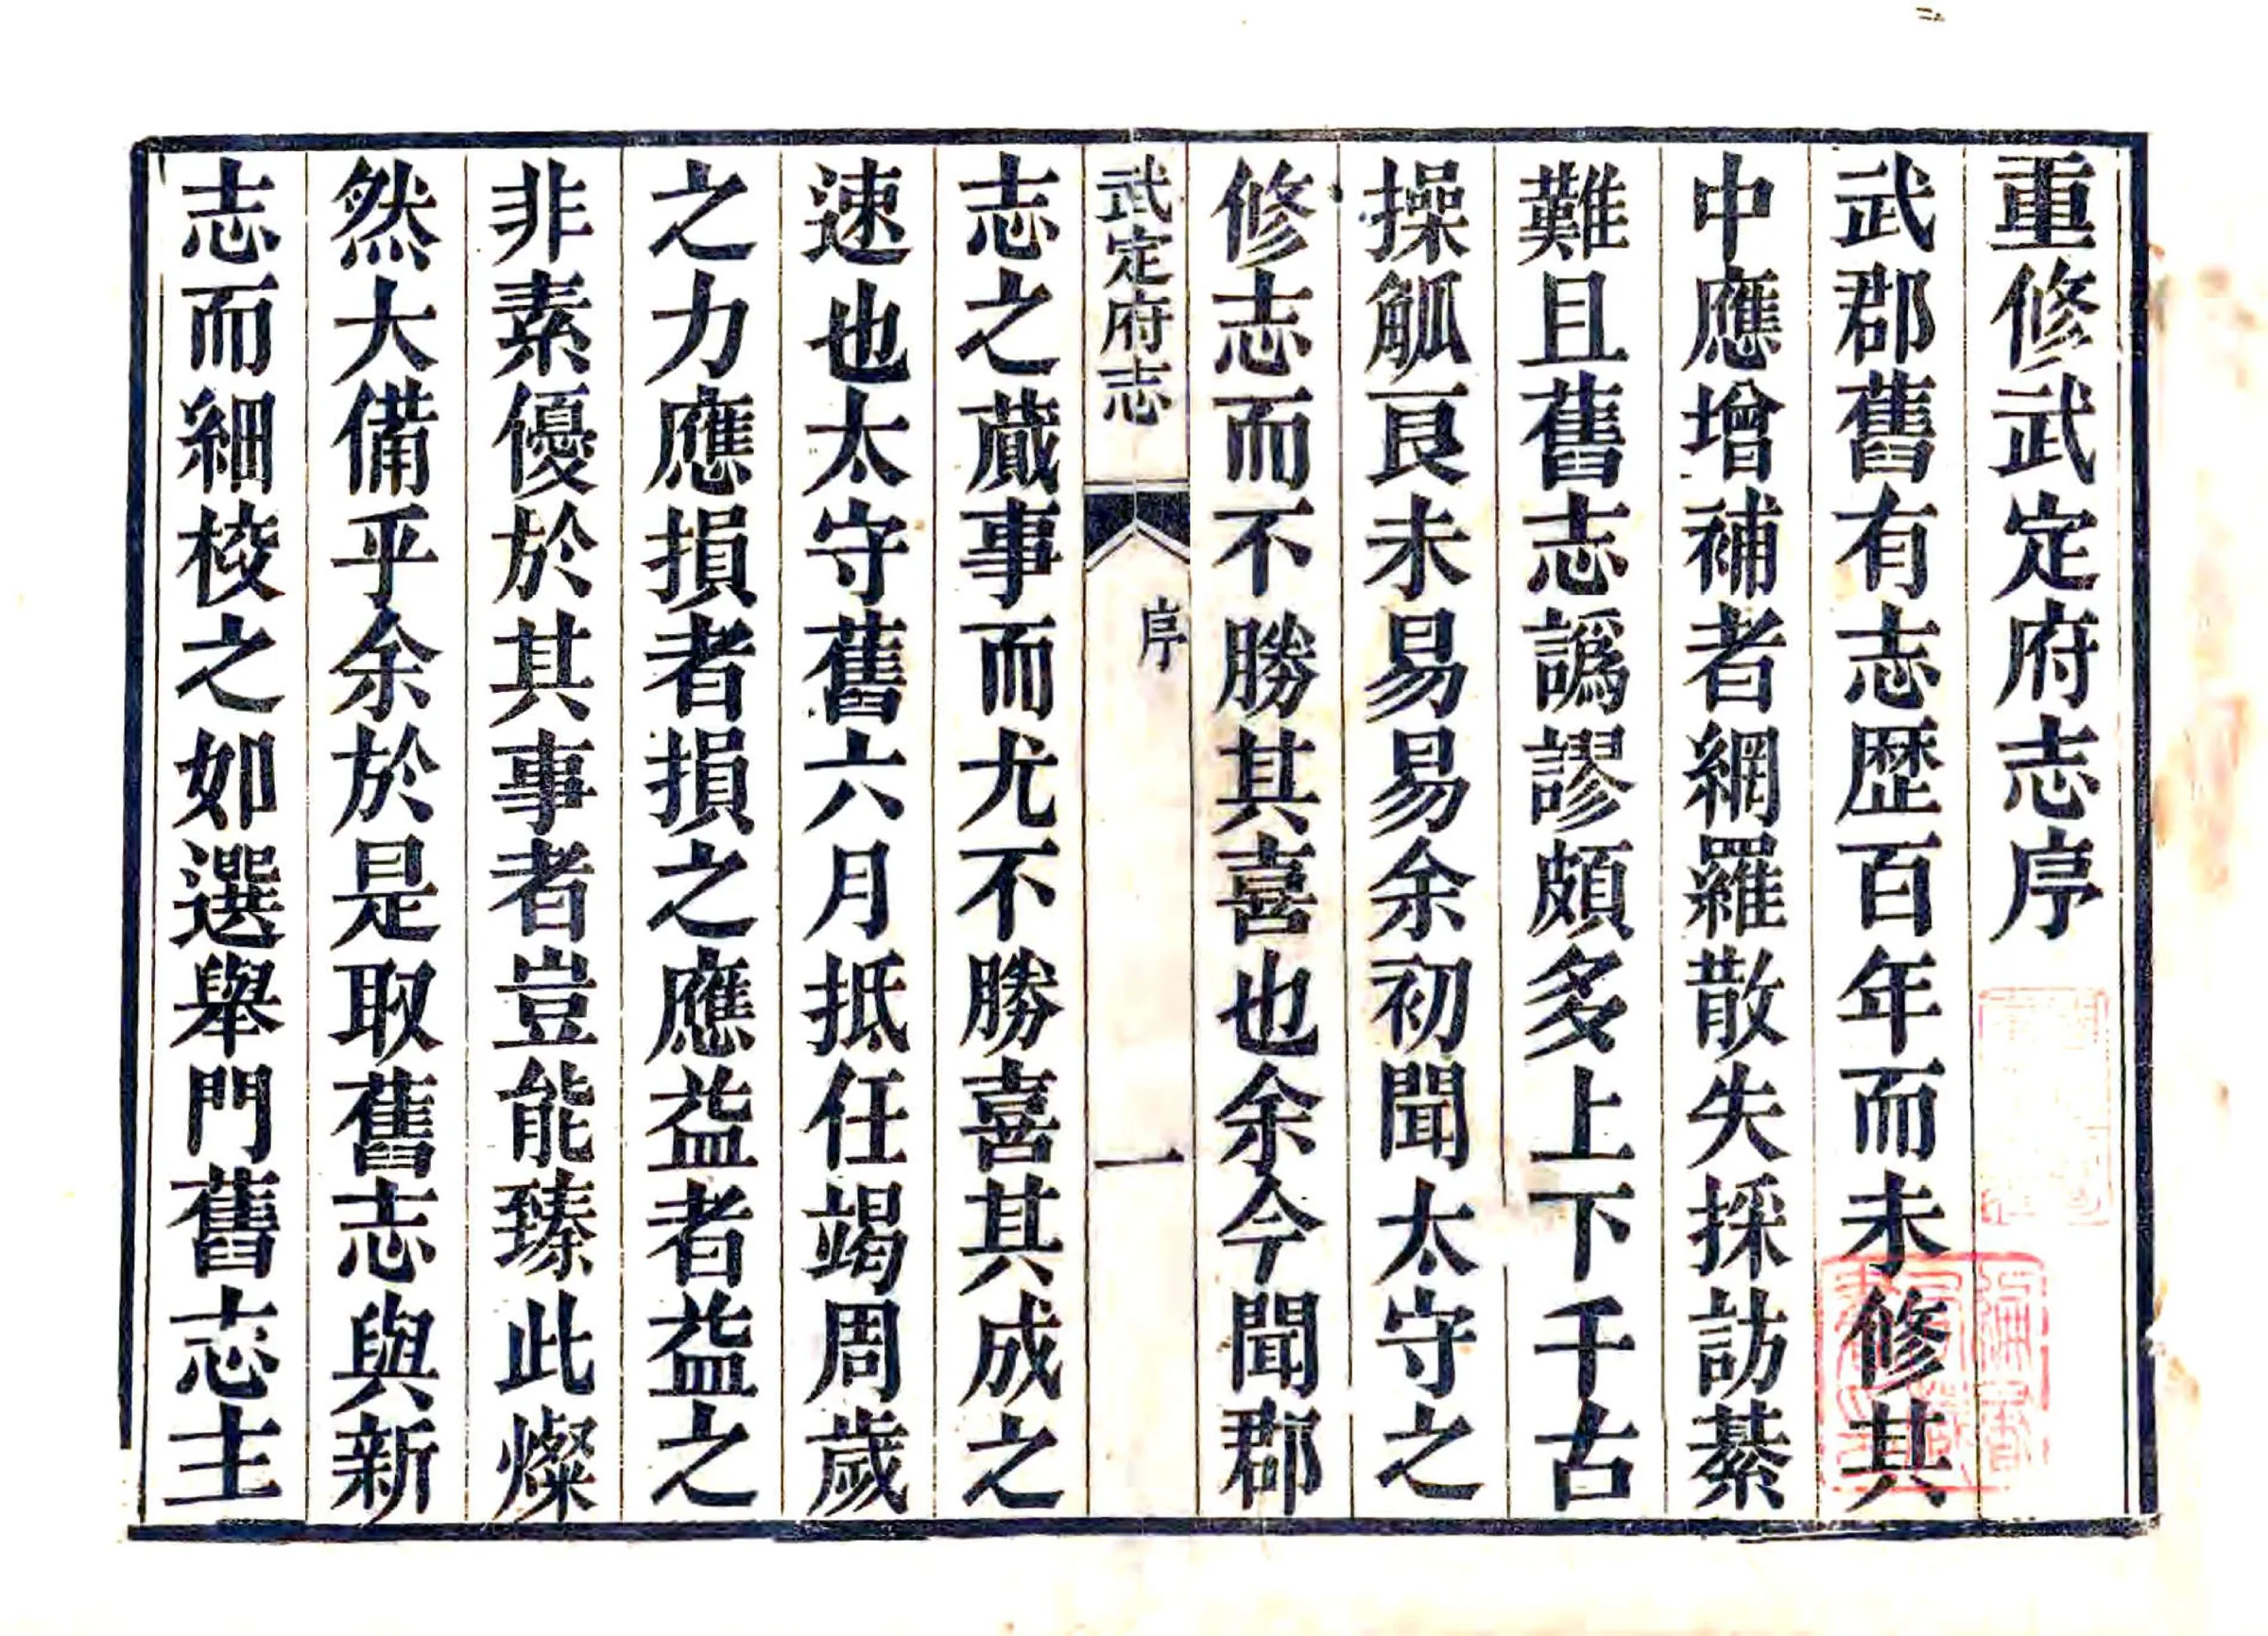 重修武定府志序
武郡舊有志歴百年而未修其
中應增補者網羅散失採訪綦
難且舊志譌謬頗多上下千古
操觚良未易易余初聞太守之
修志而不勝其喜也余今聞郡
武定府志
序
一
志之蕆事而尤不勝喜其成之
速也太守舊六月抵任竭周歲
之力應損者損之應益者益之
非素優於其事者豈能臻此燦
然大備乎余於是取舊志與新
志而細校之如選舉門舊志主